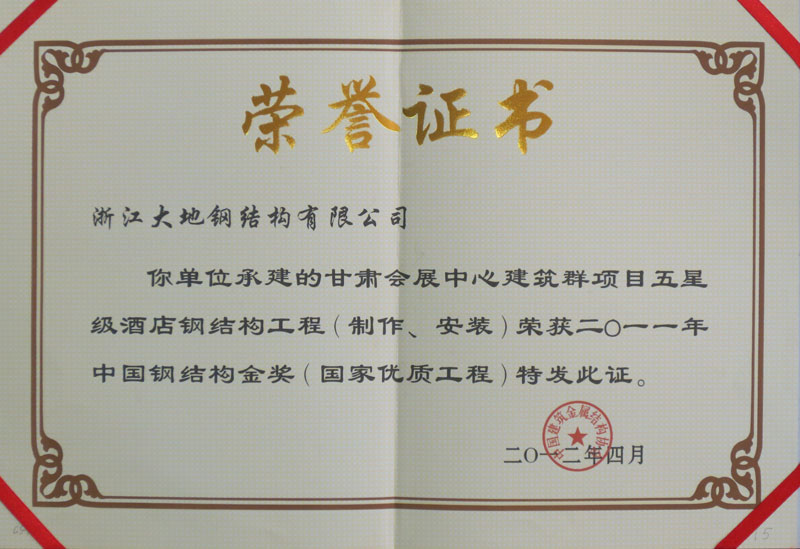 荣誉证书
浙江大地钢结构有限公司
你单位承建的甘肃会展中心建筑群项目五星
级酒店钢结构工程（制作、安装）荣获二〇一一年
中国钢结构金奖（国家优质工程）特发此证。
中国建筑金属结构协会
二〇一二年四月